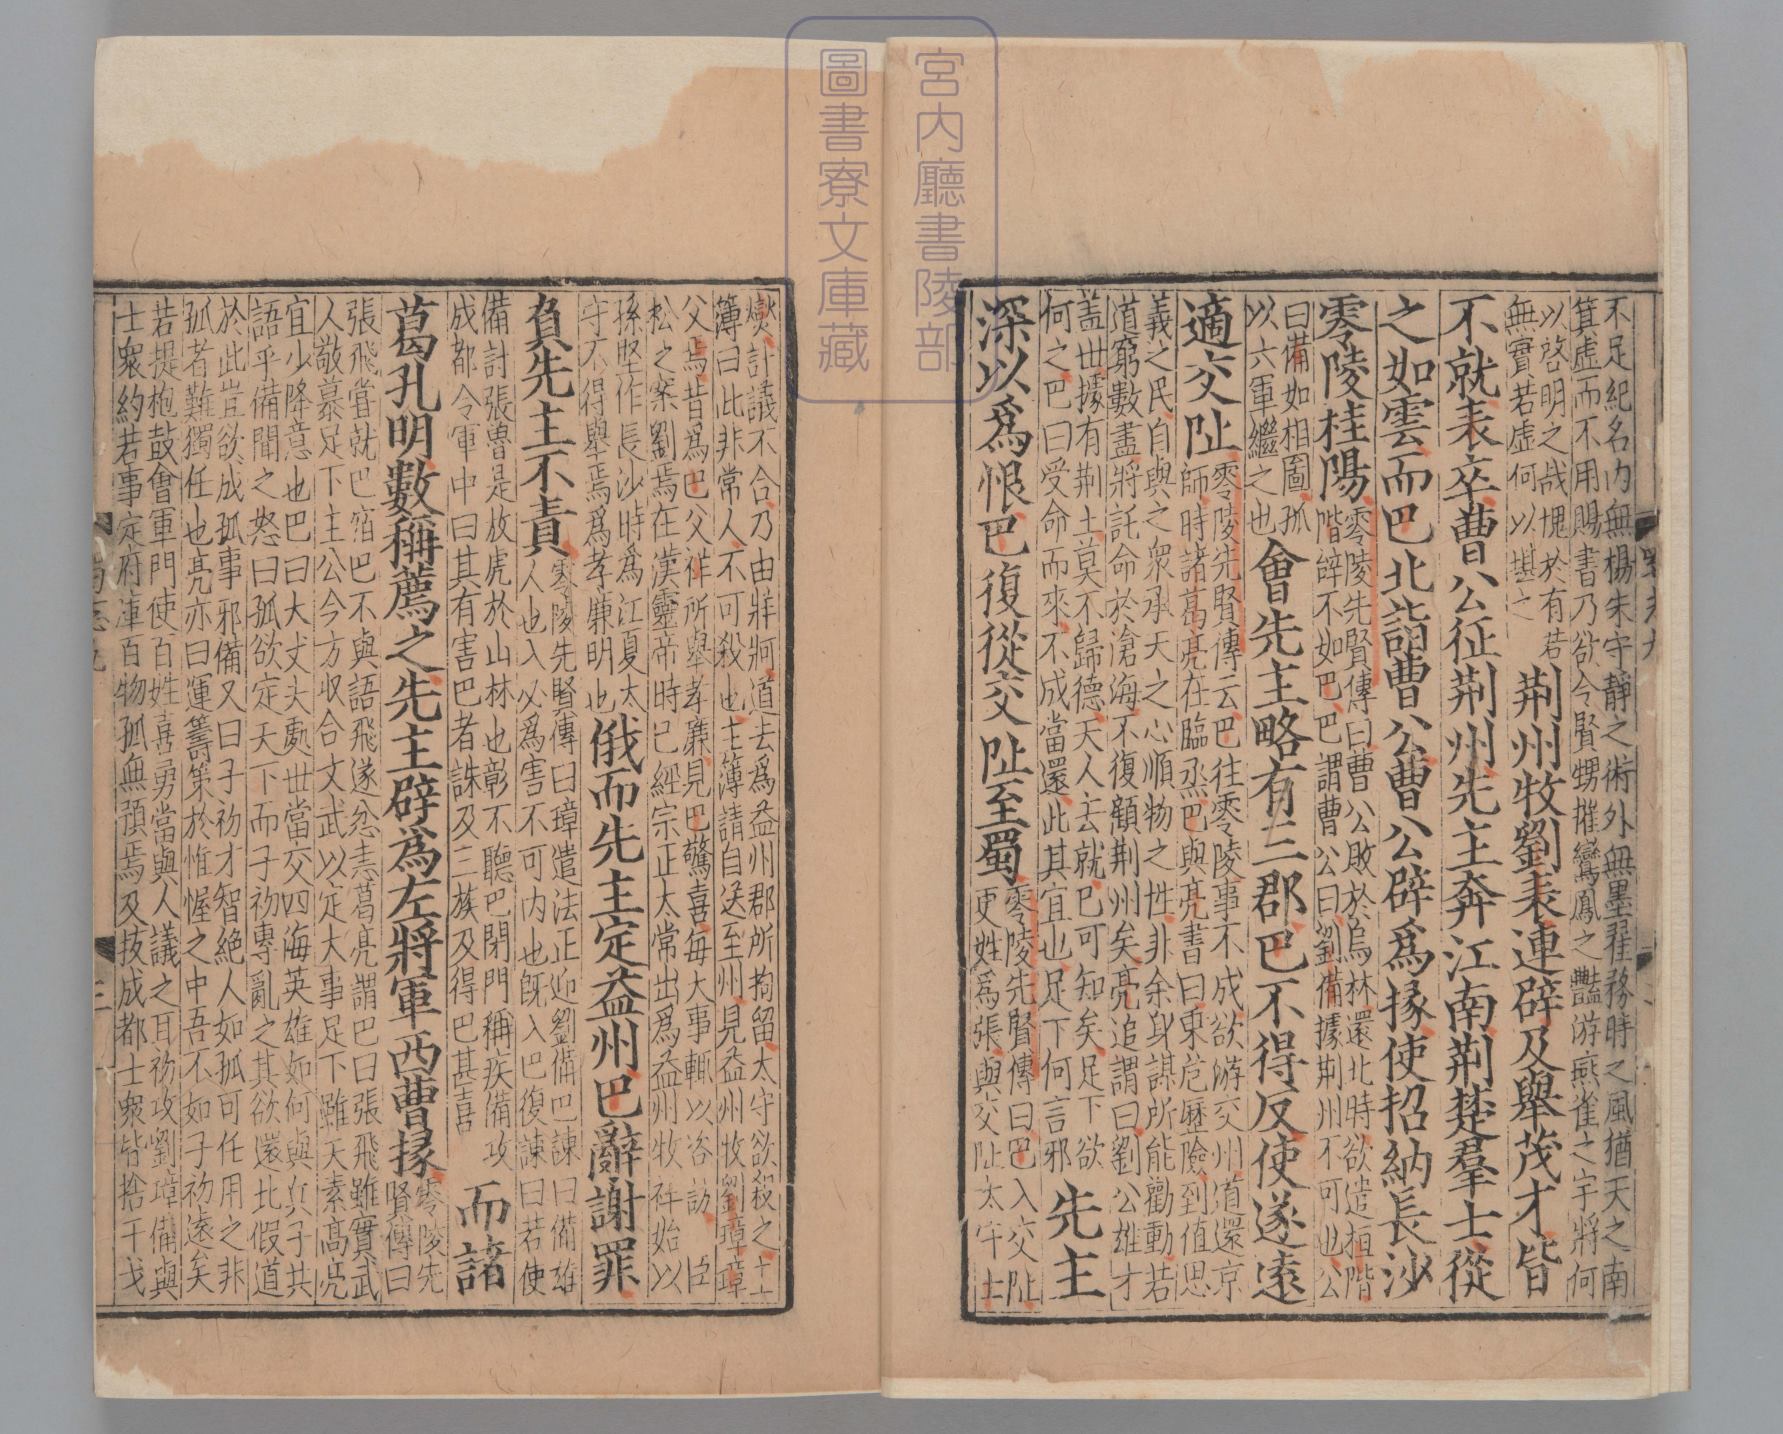 宮内廳書陵部
圖書寮文庫藏
不足紀名内無楊朱守靜之術外無墨翟務時之風猶天之南
箕虛而不用賜書乃欲令賢甥摧鸞鳳之豔游燕雀之宇將何
以啓明之哉愧於有若
無實若虛何以堪之
荆州牧劉表連辟及舉茂才皆
不就表卒曹公征荆州先主奔江南荆楚羣士從
之如雲而巴北詣曹公曹公辟爲掾使招納長沙
零陵桂陽
零陵先賢傳曰曹公敗於烏林還北時欲遣桓階
階辭不如巴巴謂曹公曰劉備據荆州不可也公
曰備如相圖孤
以六軍繼之也
會先主略有三郡巴不得反使遂遠
適交阯
零陵先賢傳云巴往零陵事不成欲游交州道還京
師時諸葛亮在臨烝巴與亮書曰乘危歷險到值思
義之民自與之衆承天之心順物之性非余身謀所能勸動若
道窮數盡將託命於滄海不復顧荆州矣亮追謂曰劉公雄才
蓋世據有荆土莫不歸德天人去就已可知矣足下欲
何之巴曰受命而來不成當還此其宜也足下何言邪
先主
深以爲恨巴復從交阯至蜀
零陵先賢傳曰巴入交阯
更姓爲張與交阯太守士
燮計議不合乃由牂牁道去爲益州郡所拘留太守欲殺之主
簿曰此非常人不可殺也主簿請自送至州見益州牧劉璋璋
父焉昔爲巴父祥所舉孝廉見巴驚喜每大事輒以咨訪 臣
松之案劉焉在漢靈帝時已經宗正太常出爲益州牧祥始以
孫堅作長沙時爲江夏太
守不得舉焉爲孝廉明也
俄而先主定益州巴辭謝罪
負先主不責
零陵先賢傳曰璋遣法正迎劉備巴諫曰備雄
人也入必爲害不可内也旣入巴復諫曰若使
備討張魯是放虎於山林也彰不聽巴閉門稱疾備攻
成都令軍中曰其有害巴者誅及三族及得巴甚喜
而諸
葛孔明數稱薦之先主辟爲左將軍西曹掾
零陵先
賢傳曰
張飛嘗就巴宿巴不與語飛遂忿恚葛亮謂巴曰張飛雖實武
人敬慕足下主公今方收合文武以定大事足下雖天素高亮
宜少降意也巴曰大丈夫處世當交四海英雄如何與兵子共
語乎備聞之怒曰孤欲定天下而子初專亂之其欲還北假道
於此豈欲成孤事邪備又曰子初才智絶人如孤可任用之非
孤者難獨任也亮亦曰運籌策於帷幄之中吾不如子初遠矣
若提枹鼓會軍門使百姓喜勇當與人議之耳初攻劉璋備與
士衆約若事定府庫百物孤無預焉及拔成都士衆皆捨干戈